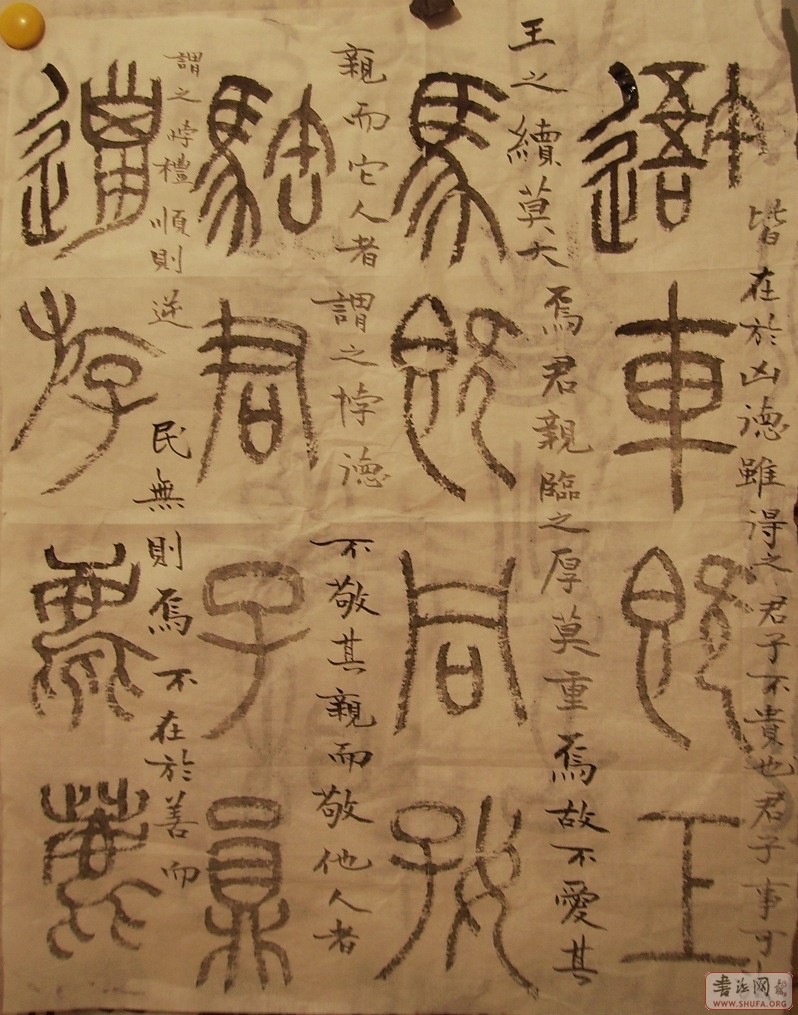 皆在於凶德雖得之君子不貴也君子事可
車既工
王之續莫大焉君親臨之厚莫重焉故不愛其
馬既同
親而它人者謂之悖德不敬其親而敬他人者
君子員
謂之悖禮順則逆民無則焉不在於善而
邋斿
书法网
WWW.SHUFA.ORG